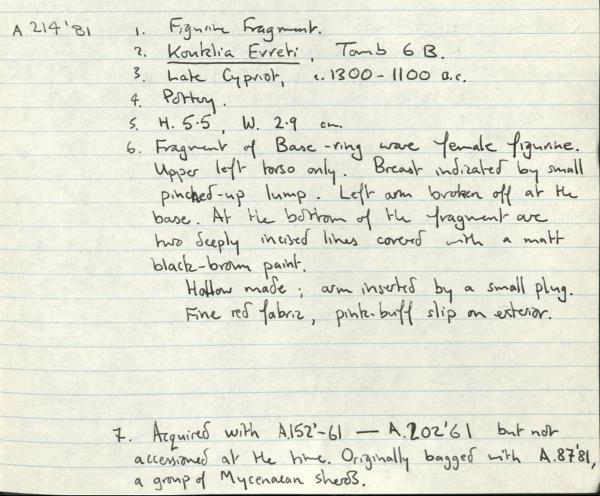 A 214'81 1. Figurine Fragment.
2. Kouklia Evreti, Tomb 6 B.
3. Late Cypriot, c. 1300-1100 B.C.
4. Pottery.
5. H. 5.5, W. 2.9 cm.
6. Fragment of Base-ring ware female figurine.
Upper left torso only. Breast indicated by small
pinched-up lump. Left arm broken off at the
base. At the bottom of the fragment are
two deeply incised lines covered with a matt
black-brown paint.
Hollow made; arm inserted by a small plug.
Fine red fabric, pink-buff slip on exterior.
7. Acquired with A.152'-61 — A.202'61 but not
accessioned at the time. Originally bagged with A.87'81,
a group of Mycenaean sherds.